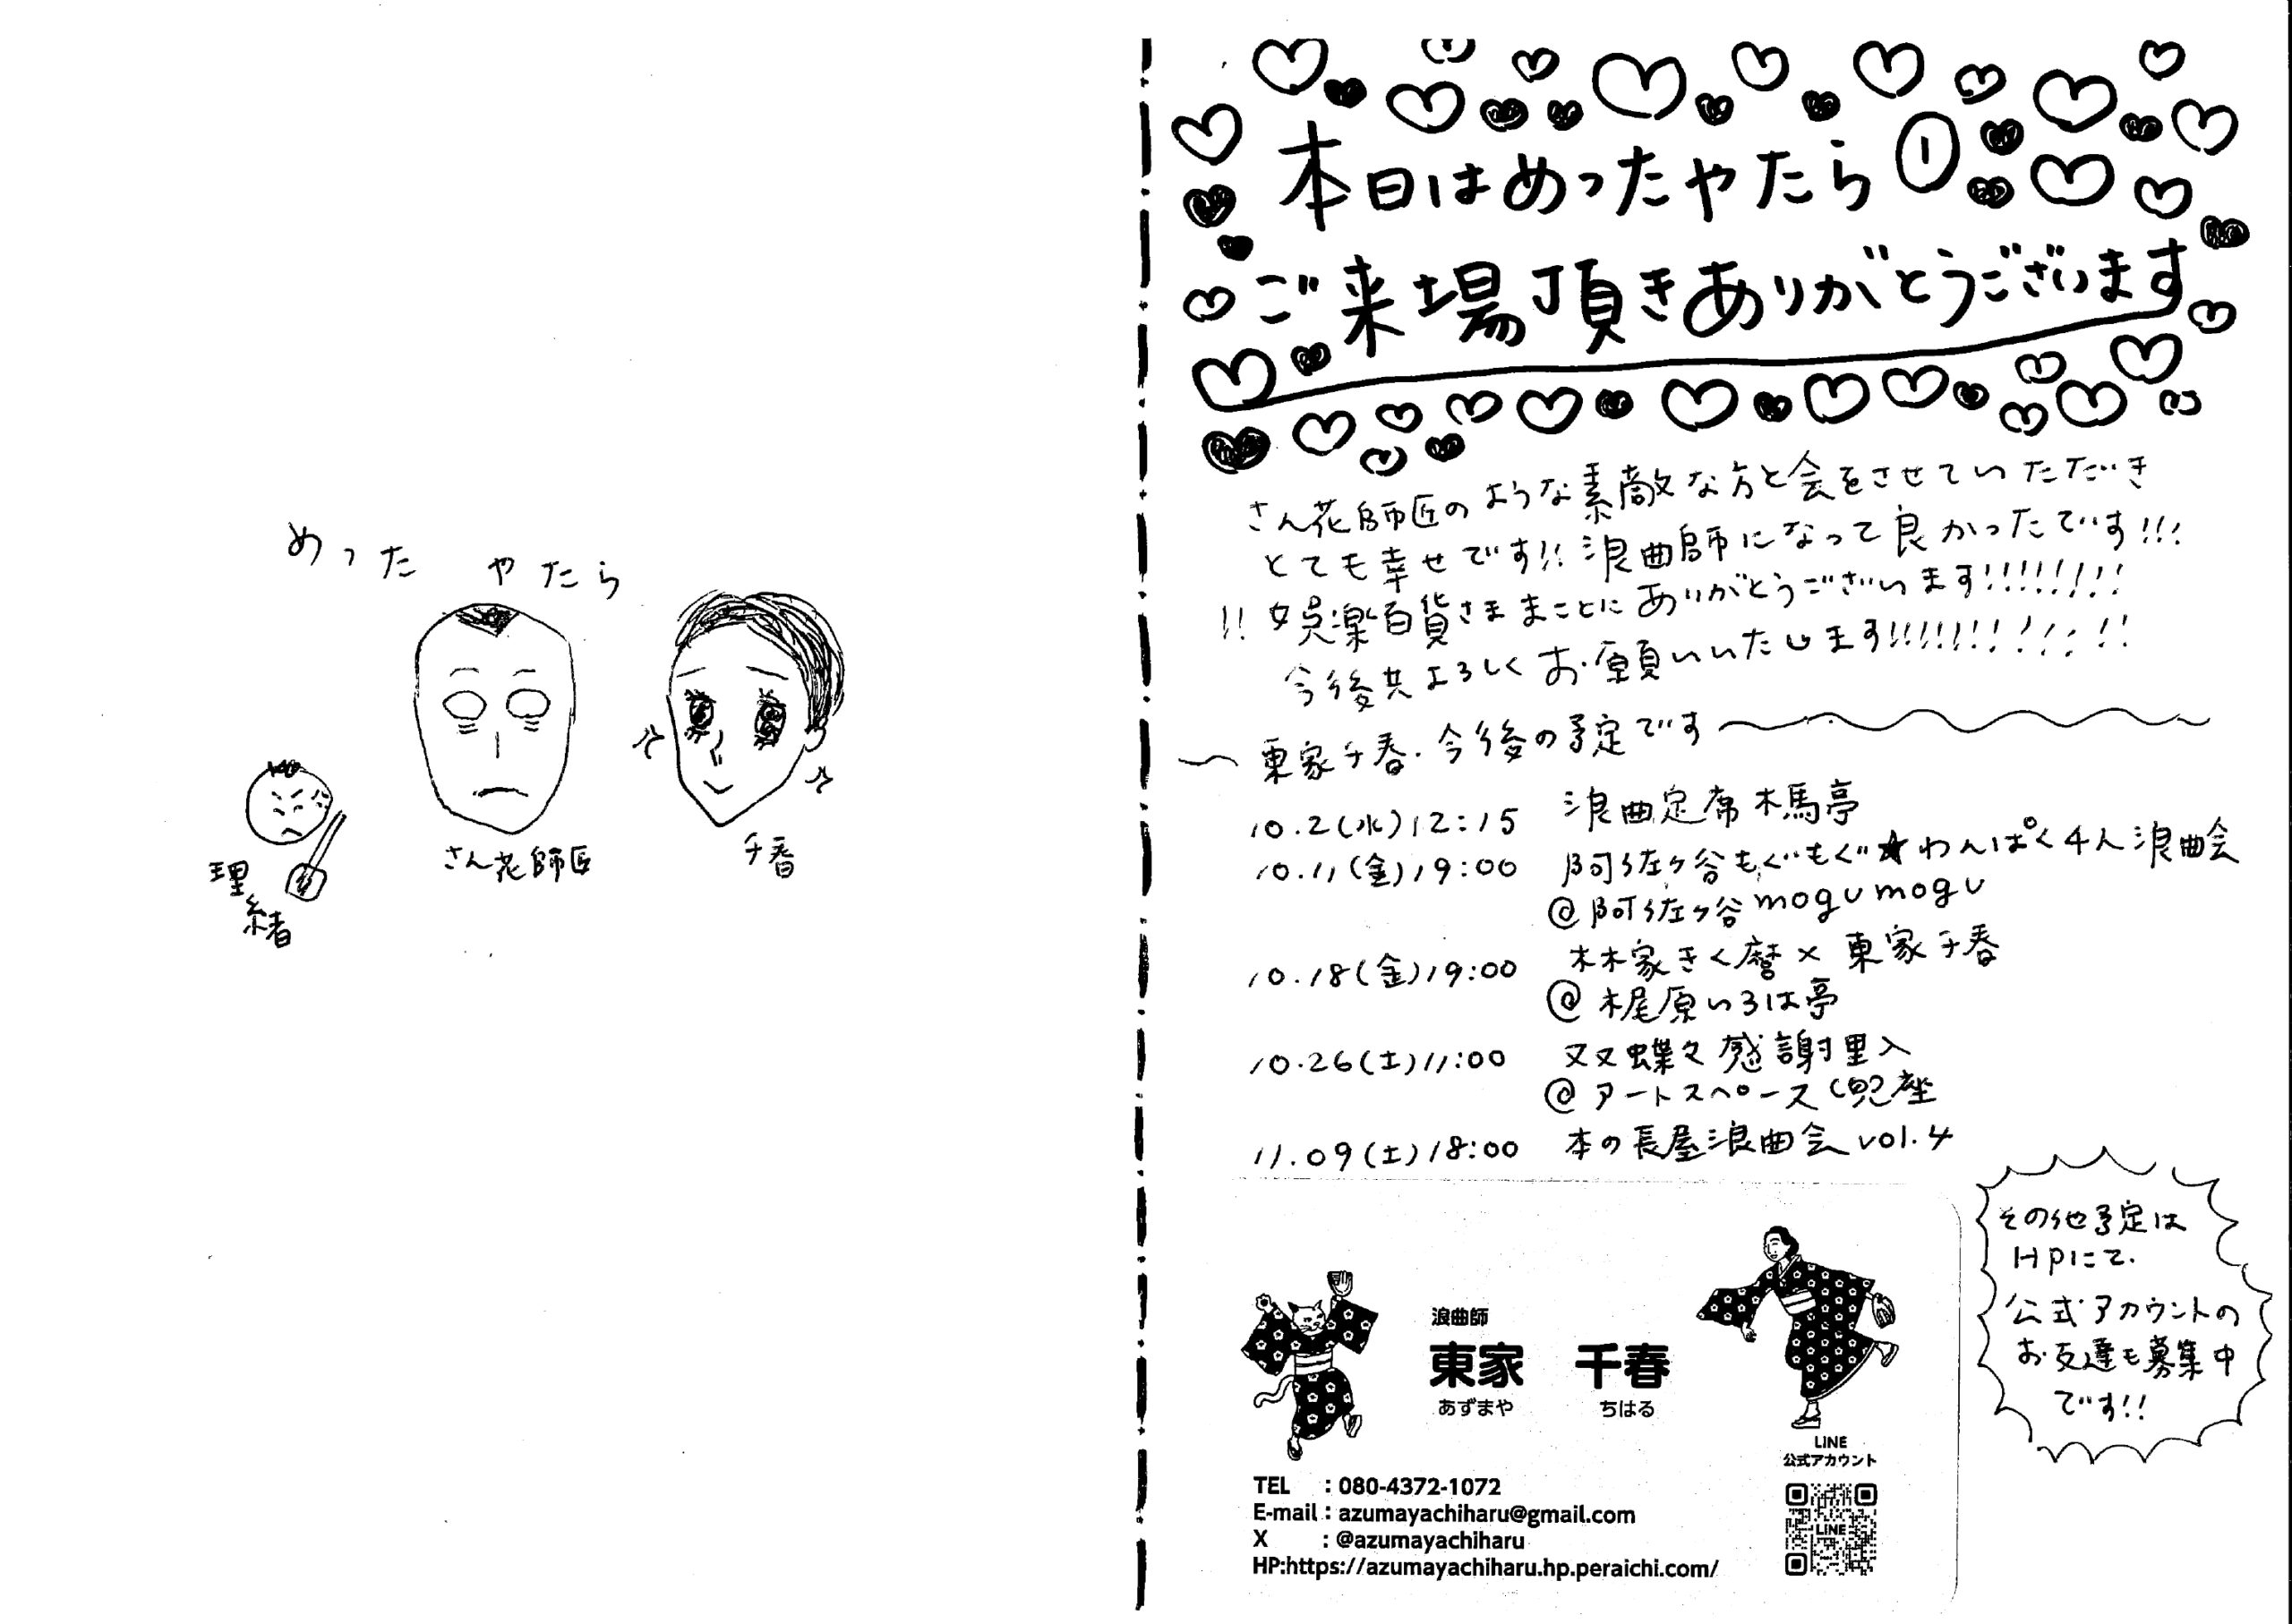 めった やたら
さん花師匠
千春
理緒
本日はめったやたら①
ご来場頂きありがとうございます
さん花師匠のような素敵な方と会をさせていただき
とても幸せです!! 浪曲師になって良かったです!!!
!! 娯楽百貨さままことにありがとうございます!!!!!!!!
今後共よろしくお願いいたします!!!!!!!!!!!!!
〜 東家千春・今後の予定です 〜
10.2(水)12:15 浪曲定席木馬亭
10.11(金)19:00 阿佐ヶ谷もぐもぐ★わんぱく4人浪曲会
@阿佐ヶ谷mogumogu
10.18(金)19:00 林家きく麿×東家千春
@梶原いろは亭
10.26(土)11:00 又又蝶々感謝里入
@アートスペース兜座
11.09(土)18:00 本の長屋浪曲会vol.4
その他予定は
HPにて.
公式アカウントの
お友達も募集中
です!!
浪曲師
東家 千春
あずまや ちはる
LINE
公式アカウント
LINE
TEL : 080-4372-1072
E-mail : azumayachiharu@gmail.com
X : @azumayachiharu
HP:https://azumayachiharu.hp.peraichi.com/